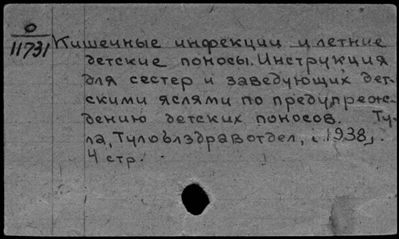 О
11731
Кишечные инфекции и летние
детские поносы. Инструкция
для сестер и заведующих дет-
скими яслями по предупреж-
дению детских поносов. Ту-
ла, Тулоблздравотдел, 1938,
4 стр.